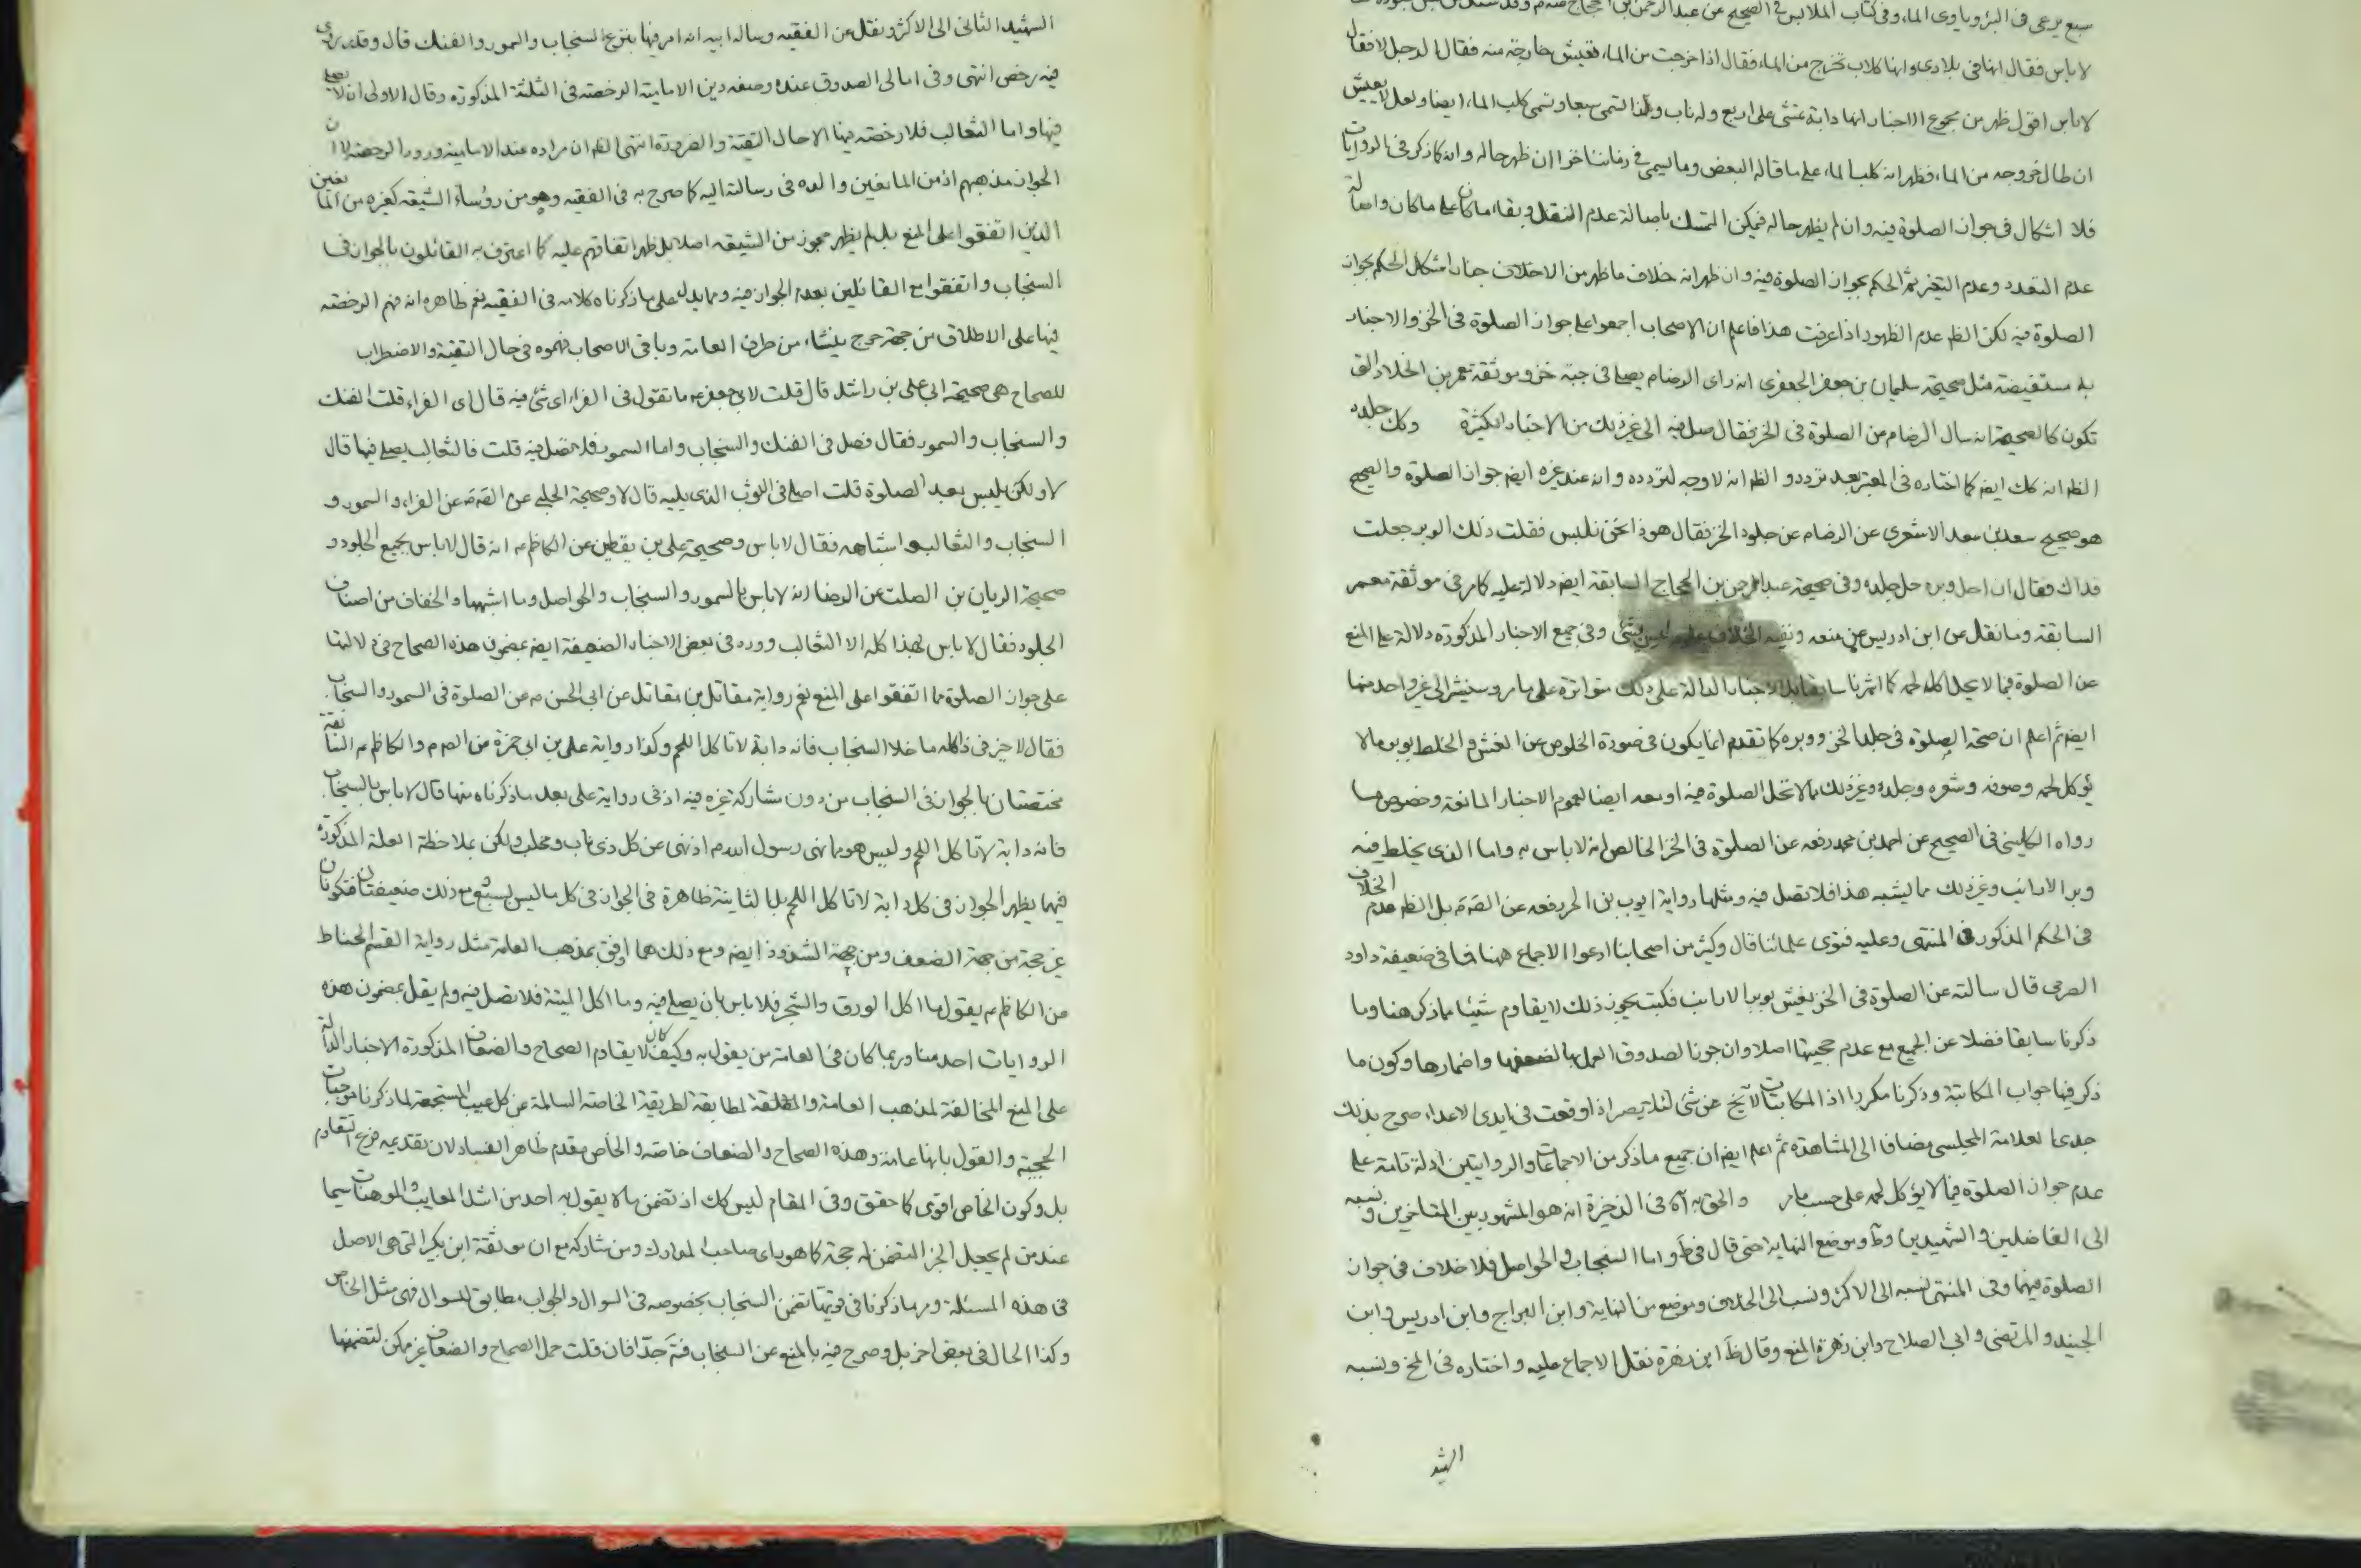 سبع يرعى فى البر وياوى الماء وفى كتاب الملابس فى الصحيح عن عبد الرحمن بن الحجاج
لا باس فقال انها فى بلادى وانها كلاب تخرج من الماء فقال اذا خرجت من الماء تعيش خارجة منه فقال الرجل لا فقال
لا باس اقول ظهر من مجموع الاخبار انها دابة تمشى على اربع وله ناب ولذا لتسمى سبعا وتسمى كلب الماء ايضا ولعل لا يعيش
ان طال خروجه من الماء فظهر انه كلب الماء على ما قاله البعض وما يسمى فى زماننا خزا ان ظهر حاله وانه كما ذكر فى الروايات
فلا اشكال فى جواز الصلوة فيه وان لم يظهر حاله فيمكن التمسك باصالة عدم النقل وبقاء ما كان على ما كان واصالة
عدم التعدد وعدم التغير ثم الحكم بجواز الصلوة فيه وان ظهر انه خلاف ما ظهر من الاخلاف اشكال الحكم بجواز
الصلوة فيه لكن الظ عدم الظهور اذا عرفت هذا فاعلم ان الاصحاب اجمعوا على جواز الصلوة فى الخز والاخبار
به مستفيضة مثل صحيحة سليمان بن جعفر الجعفرى انه راى الرضا م يصلى فى جبة خز وموثقة معمر بن الخلاد التى
تكون كالصحيحة انه سال الرضا م من الصلوة فى الخز فقال صل فيه الى غير ذلك من الاخبار الكثيرة وكك جلده
الظ انه كك ايضا كما اختاره فى المعتبر بعد تردد و الظ انه لا وجه لتردده وانه عند غيره ايضا جواز الصلوة والصحيح
هو صحيح سعد بن سعد الاشعرى عن الرضا م عن جلود الخز فقال هوذا نحن نلبس فقلت ذلك الوبر جعلت
فداك فقال اذا حل وبره حل جلده وفى صحيحة عبد الرحمن بن الحجاج السابقة ايضا دلالة عليه كما مر فى موثقة معمر
السابقة وما نقل عن ابن ادريس من منعه ونفيه الخلاف عليه ليس بشئ وفى جميع الاخبار المذكورة دلالة على المنع
عن الصلوة فيما لا يحل اكله لحمه كما اشرنا سابقا بل الاخبار الدالة على ذلك متواترة على ما مر وسنشير الى غير واحد منها
ايضا ثم اعلم ان صحة الصلوة فى جلد الخز ووبره كما تقدم انما يكون فى صورة الخلوص عن الغش والخلط بوبر ما لا
يؤكل لحمه وصوفه وشعره وجلده وغير ذلك مما لا تحل الصلوة فيه او معه ايضا لعموم الاخبار المانعة وخصوص ما
رواه الكلينى فى الصحيح عن احمد بن محمد رفعه عن الصلوة فى الخز الخالص انه لا باس به واما الذى يخلط فيه
وبر الارانب وغير ذلك مما يشبه هذا فلا تصل فيه ومثلها رواية ايوب بن الحر رفعه عن الصم بل الظ عدم الخلاف
فى الحكم المذكور فى المنتهى وعليه فتوى علمائنا قال وكثير من اصحابنا ادعوا الاجماع ههنا فما فى ضعيفة داود
الصرمى قال سالته عن الصلوة فى الخز يغش بوبر الارانب فكتب يجوز ذلك لا يقاوم شيئا مما ذكر هنا وما
ذكرنا سابقا فضلا عن الجميع مع عدم حجيتها اصلا وان جوز الصدوق العمل بها لضعفها واضمارها وكون ما
ذكر فيها جواب المكاتبة وذكرنا مكررا اذ المكاتبات لا تخ عن شئ لئلا يصر اذا وقعت فى ايدى الاعداء صرح بذلك
جدى العلامة المجلسى مضافا الى المشاهدة ثم اعلم ايضا ان جميع ما ذكر من الاجماعات والروايتين ادلة تامة على
عدم جواز الصلوة فيما لا يؤكل لحمه على حسب ما مر والحق به فى الذخيرة انه هو المشهور بين المتاخرين ونسبه
الى الفاضلين والشهيدين وط وموضع النهاية حتى قال فى ط واما السنجاب والحواصل فلا خلاف فى جواز
الصلوة فيهما وفى المنتهى نسبه الى الاكثر ونسب الى الخلاف وموضع من النهاية وابن البراج وابن ادريس وابن
الجنيد والمرتضى وابى الصلاح وابن زهرة المنع وقال ظ ابن زهرة نقل الاجماع عليه واختاره فى المخ ونسبه
الشهـ
الشهيد الثانى الى الاكثر ونقل عن الفقيه رسالة ابيه انه امر فيها بنزع السنجاب والسمور والفنك قال وقد روى
فيه رخص انتهى وفى امالى الصدوق عنده وصفه دين الامامية الرخصة فى الثلثة المذكورة وقال الاولى ان لا يصلى
فيها واما الثعالب فلا رخصة فيها الا حال التقية والضرورة انتهى الظ ان مراده عند الامامية ورود الرخصة لا ان
الجواز مذهبهم اذ من المانعين والده فى رسالته اليه كما صرح به فى الفقيه وهو من رؤساء الشيعة كغيره من المانعين
الذين اتفقوا على المنع بل لم يظهر مجوز من الشيعة اصلا بل ظهر اتفاقهم عليه كما اعترف به القائلون بالجواز فى
السنجاب واتفقوا مع القائلين بعدم الجواز فيه ومما يدل على ما ذكرناه كلامه فى الفقيه نعم ظاهره انه فهم الرخصة
فيها على الاطلاق من جهة حرج ينشاء من طرف العامة وباقى الاصحاب فهموه فى حال التقية والاضطراب
للصحاح هى صحيحة ابى على بن راشد قال قلت لابى جعفر ع ما تقول فى الفراء اى شئ فيه قال اى الفراء قلت الفنك
والسنجاب والسمور فقال فصل فى الفنك والسنجاب واما السمور فلا تصل فيه قلت فالثعالب يصلى فيها قال
لا ولكن يلبس بعد الصلوة قلت اصلى فى الثوب الذى يليه قال لا وصحيحة الحلبى عن الصم عن الفراء والسمور و
السنجاب والثعالب واشباهه فقال لا باس وصحيحة على بن يقطين عن الكاظم ع انه قال لا باس بجميع الجلود و
صحيحة الريان بن الصلت عن الرضا انه لا باس بالسمور والسنجاب والحواصل وما اشبهها والخفاف من اصناف
الجلود فقال لا باس بهذا كله الا الثعالب وورد فى بعض الاخبار الضعيفة ايضا بمضمون هذه الصحاح فى دلالتها
على جواز الصلوة مما اتفقوا على المنع نعم رواية مقاتل بن مقاتل عن ابى الحسن م عن الصلوة فى السمور والسنجاب
فقال لا خير فى ذا كله ما خلا السنجاب فانه دابة لا تاكل اللحم وكذا رواية على بن ابى حمزة عن الصم والكاظم م السابقة
مختصتان بالجواز فى السنجاب من دون مشاركة غيره فيه اذ فى رواية على بعد ما ذكرناه منها قال لا باس بالسنجاب
فانه دابة لا تاكل اللحم وليس هو مما نهى رسول الله م اذ نهى عن كل ذى ناب ومخلب ولكن بملاحظة العلة المذكورة
فيهما يظهر الجواز فى كل دابة لا تاكل اللحم بل الثانية ظاهرة فى الجواز فى كل ما ليس بسبع مع ذلك ضعيفتان فتكونان
غير حجة من جهة الضعف ومن جهة الشذوذ ايضا ومع ذلك هما اوفق بمذهب العامة مثل رواية القسم الحناط
عن الكاظم م يقول ما اكل الورق والشجر فلا باس بان يصلى فيه وما اكل الميتة فلا تصل فيه ولم يقل بمضمون هذه
الروايات احد منا وربما كان فى العامة من يقول به وكيف كان لا يقاوم الصحاح والضعاف المذكورة الاخبار الدالة
على المنع المخالفة لمذهب العامة والمطابقة لطريقة الخاصة السالمة عن كل عيب المستجمعة لما ذكرنا موجبات
الحجية والقول بانها عامة وهذه الصحاح والضعاف خاصة والخاص مقدم ظاهر الفساد لان تقديمه فرع التقاوم
بل وكون الخاص اقوى كما حقق وفى المقام ليس كك اذ تضمن ما لا يقول به احد من اشد المعايب والموهنات سيما
عند من لم يجعل الجزء المتضمن له حجة كما هو راى صاحب المدارك ومن شاركه مع ان موثقة ابن بكير التى هى الاصل
فى هذه المسئلة ومر ما ذكرنا فى قوتها تضمن السنجاب بخصوصه فى السوال والجواب مطابق للسوال فهى مثل الخاص
وكذا الحال فى بعض اخر بل وصرح فيه بالمنع عن السنجاب فتم جدا فان قلت حمل الصحاح والضعاف غير ممكن لتضمنها